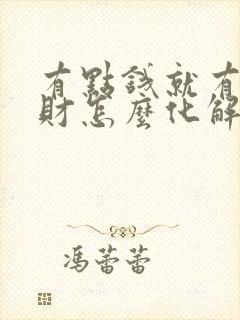 有點錢就有
財怎麼化解
馮蕾蕾